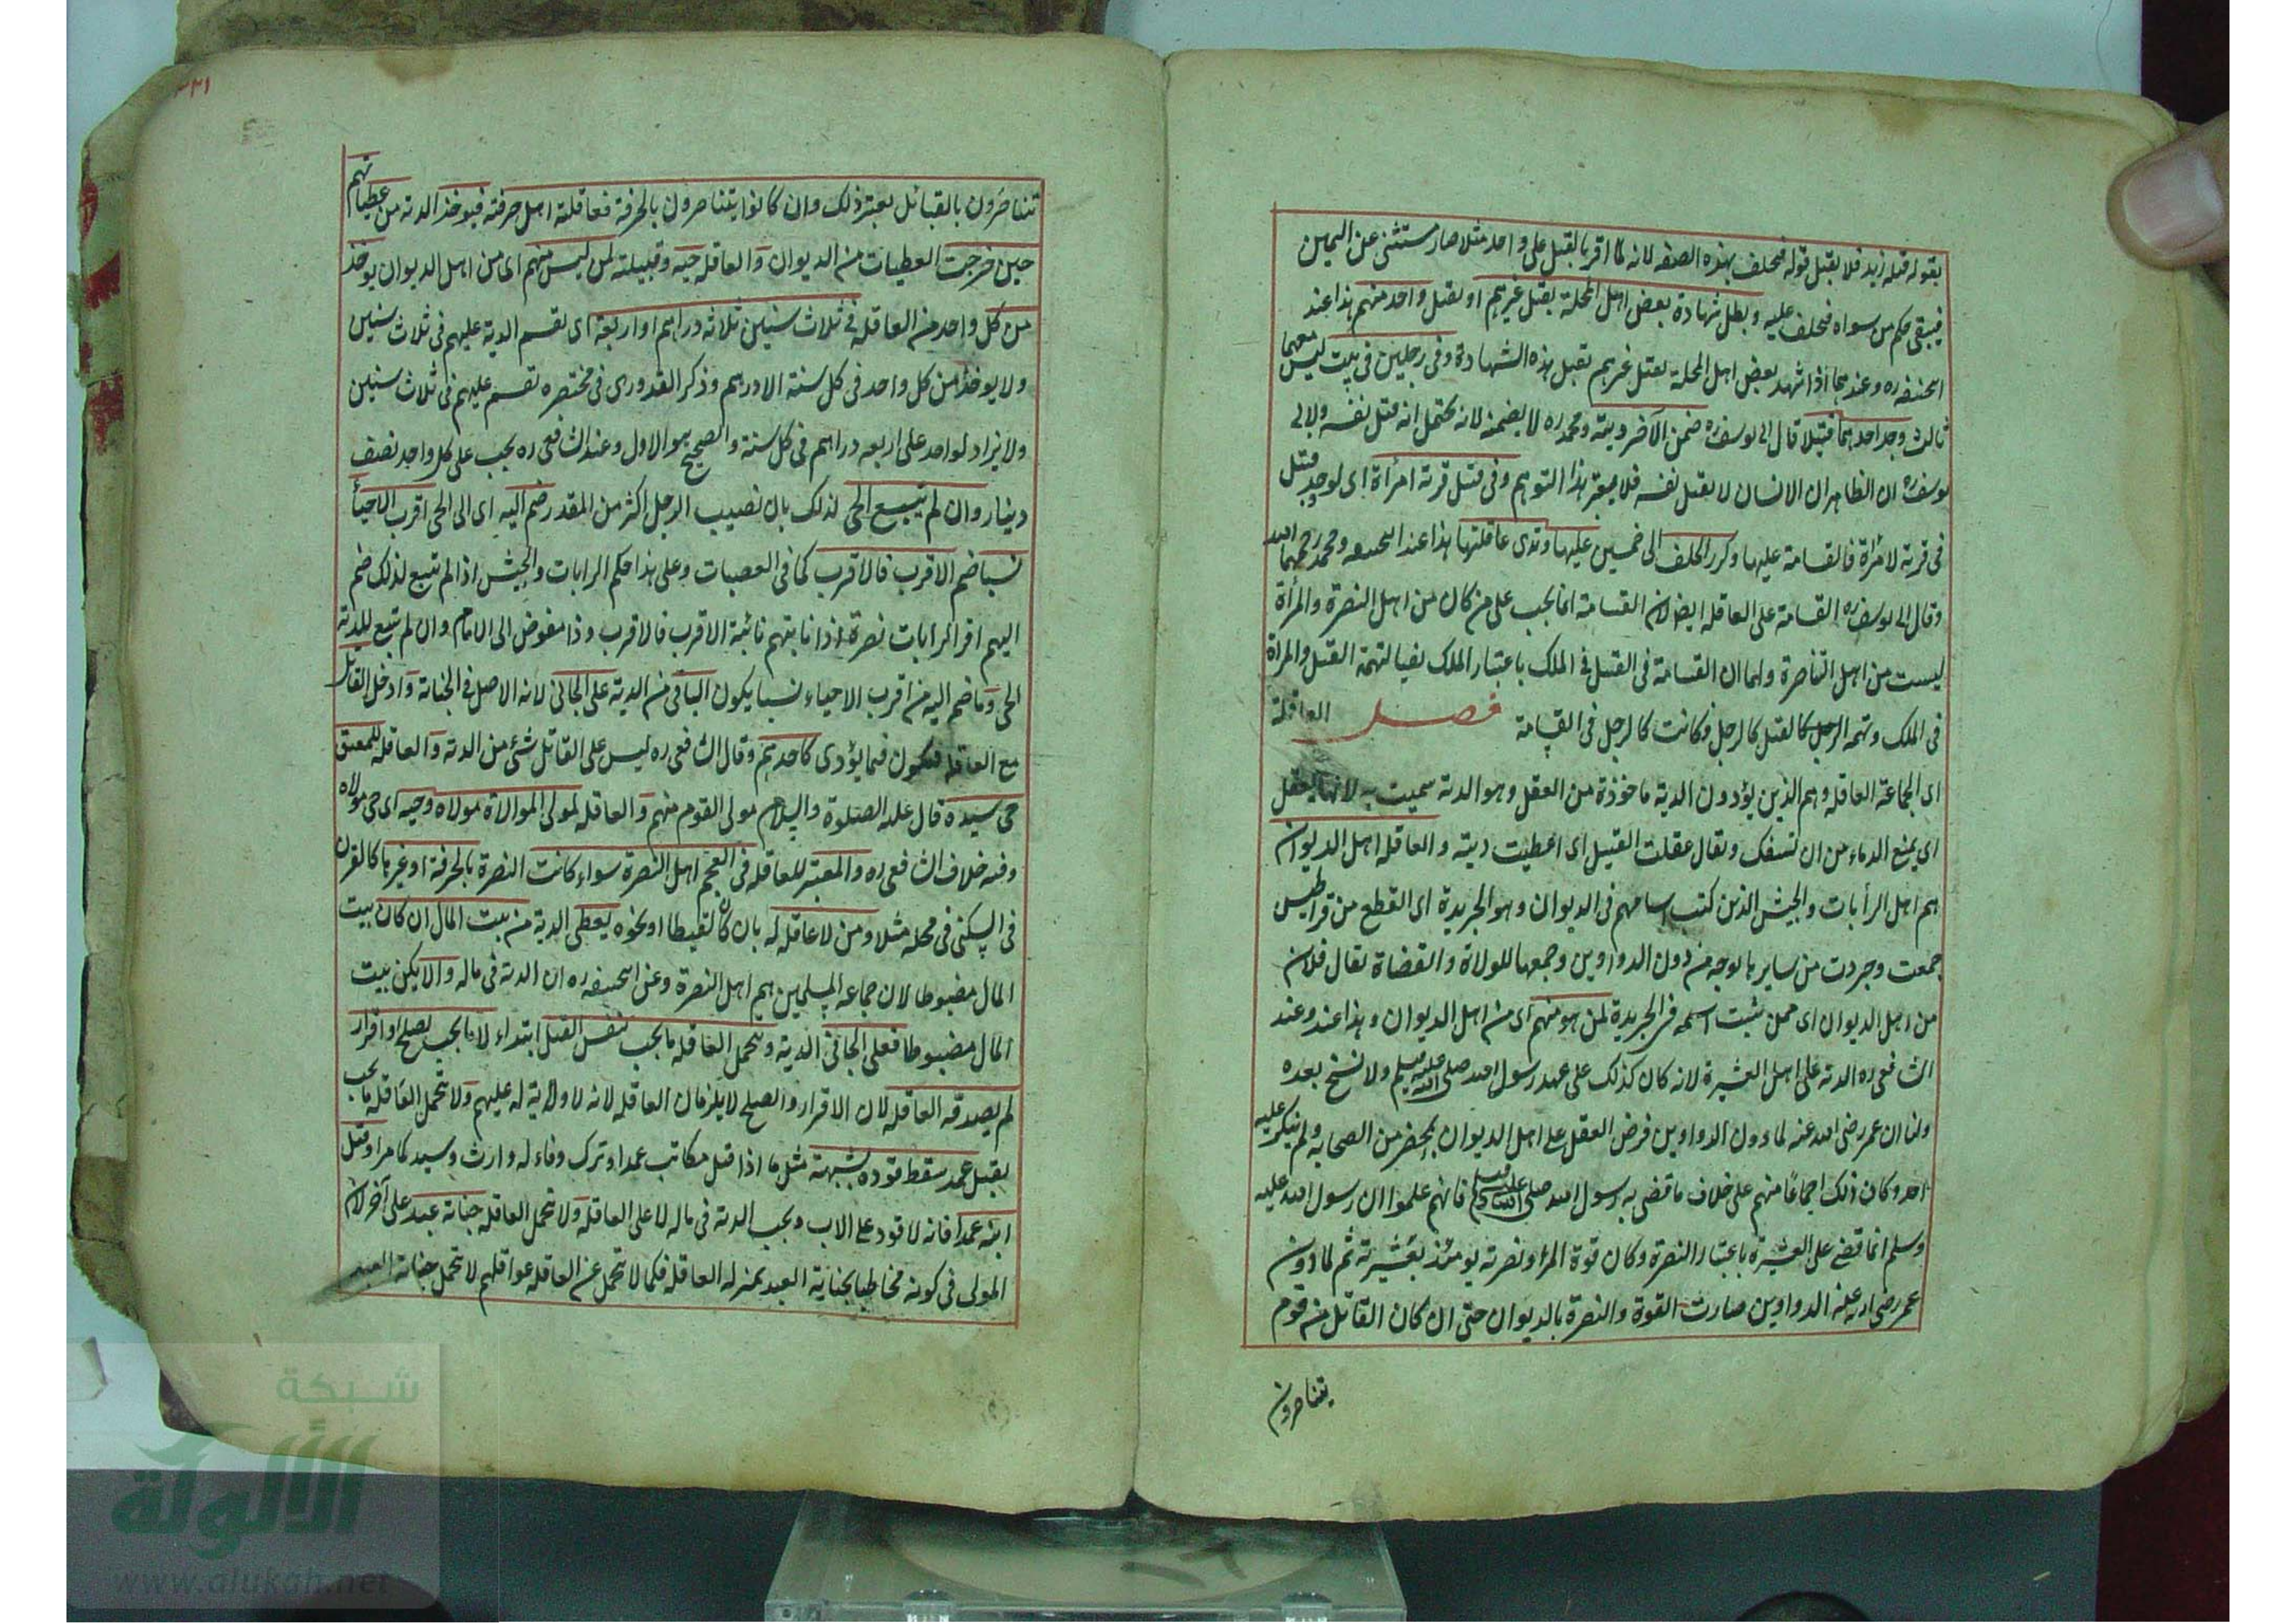 بقوله قتله زيد فلا يقبل قوله فيحلف بهذه الصفه لانه لما اقر بالقتل على واحد مثلا صار مستثنى عن اليمين
فيبقى حكم من سواه فيحلف عليه وبطل شهادة بعض اهل المحلة بقتل غيرهم او بقتل واحد منهم هذا عند
ابيحنيفه ره وعندهما اذا شهد بعض اهل المحلة بقتل غيرهم تقبل هذه الشهادة وفى رجلين فى بيت ليس معهما
ثالث وجد احدهما قتيلا قال ابى يوسف ره ضمن الآخر ديته ومحمد ره لا يضمنه لانه يحتمل انه قتل نفسه ولابى
يوسف ره ان الظاهر ان الانسان لا يقتل نفسه فلا يعتبر هذا التوهم وفى قتيل قرية امرأة اى لو وجد قتيل
فى قرية لامرأة فالقسامة عليها وكرر الحلف الى خمسين عليها وتدى عاقلتها هذا عند ابيحنيفه ومحمد رحمهما الله
وقال ابى يوسف ره القسامة على العاقله ايضا لان القسامة انما يجب على من كان من اهل النصرة والمرأة
ليست من اهل التناصرة ولهما ان القسامة فى القتيل فى الملك باعتبار الملك نفيا لتهمة القتل والمراة
فى الملك وتهمة الرجل كالقتل كالرجل فكانت كالرجل فى القسامة فصل العاقلة
اى الجماعة العاقله وهم الذين يؤدون الدية ماخوذة من العقل وهو الدية سميت به لانها يعقل
اى يمنع الدماء من ان تسفك ويقال عقلت القتيل اى اعطيت ديته والعاقله اهل الديوان
هم اهل الرأيات والجيش الذين كتب اسامهم فى الديوان وهو الجريدة اى القطع من قراطيس
جمعت وجردت من سايرها لوجه من دون الدواوين وجمعها للولاة والقضاة يقال فلان
من اهل الديوان اى ممن يثبت اسمه فى الجريدة لمن هو منهم اى من اهل الديوان وهذا عندنا وعند
الشافعى ره الدية على اهل العشيرة لانه كان كذلك على عهد رسول الله صلى الله عليه وسلم ولا نسخ بعده
ولنا ان عمر رضى الله عنه لما دون الدواوين فرض العقل على اهل الديوان بمحضر من الصحابه ولم ينكر عليه
احد وكان ذلك اجماعًا منهم على خلاف ما قضى به رسول الله صلى الله عليه وسلم فانهم علموا ان رسول الله عليه
وسلم انما قضى على العشيرة باعتبار النصرة وكان قوة المرا ونصرته يومئذ بعشيرته ثم لما دون
عمر رضى الله عنه الدواوين صارت القوة والنصرة بالديوان حتى ان كان القاتل من قوم
يتناصرون
٣٢١
تتناصرون بالقبائل يعتبر ذلك وان كانوا يتناصرون بالحرفة فعاقلته اهل حرفته فيوخذ الدية من عطياتهم
حين خرجت العطيات من الديوان والعاقله حيه وقبيلته لمن ليس منهم اى من اهل الديوان يوخذ
من كل واحد من العاقله فى ثلاث سنين ثلاثه دراهم او اربعة اى تقسم الدية عليهم فى ثلاث سنين
ولا يوخذ من كل واحد فى كل سنة الا درهم وذكر القدورى فى مختصره تقسم عليهم فى ثلاث سنين
ولا يزاد لواحد على اربعه دراهم فى كل سنة والصحيح هو الاول وعند الشافعى ره يجب على كل واحد نصف
دينار وان لم تتسع الحى لذلك بان نصيب الرجل اكثر من المقدر ضم اليه اى الى الحى اقرب الاحياء
نسبا ضم الاقرب فالاقرب كما فى العصبات وعلى هذا حكم الرايات والجيش اذا لم تتسع لذلك ضم
اليهم اقرا الرايات نصرة اذا نابتهم نائبة الاقرب فالاقرب وذا مفوض الى الامام وان لم تتسع للدية
الحى وما ضم اليه من اقرب الاحياء نسبا يكون الباقى من الدية على الجانى لانه الاصل فى الجناية وادخل القاتل
مع العاقله فيكون فيما يؤدى كاحدهم وقال الشافعى ره ليس على القاتل شئ من الدية والعاقله للمعتق
حى سيده قال عليه الصلوة والسلام مولى القوم منهم والعاقله لمولى الموالاة مولاه وحيه اى حى مولاه
وفيه خلاف الشافعى ره والمعتبر للعاقله فى العجم اهل النصرة سواء كانت النصرة بالحرفة او غيرها كالقرن
فى السكنى فى محلة مثلا ومن لا عاقله له بان كان لقيطا او نحوه يعطى الدية من بيت المال ان كان بيت
المال مضبوطا لان جماعه المسلمين هم اهل النصرة وعن ابيحنيفه ره ان الدية فى ماله والا يكن بيت
المال مضبوطا فعلى الجانى الدية ويتحمل العاقله ما يجب بنفس القتل ابتداء لا ما يجب بصلح او اقرار
لم يصدقه العاقله لان الاقرار والصلح لا يلزمان العاقله لانه لا ولاية له عليهم ولا تتحمل العاقله ما يجب
بقتل عمد سقط قوده بشبهة مثل ما اذا قتل مكاتب عمدا وترك وفاء له وارث وسيد كما مر او قتل
ابنه عمدا فانه لا قود على الاب ويجب الدية فى ماله لا على العاقله ولا تتحمل العاقله جناية عبد على آخر لان
المولى فى كونه مخاطبا بجناية العبد بمنزله العاقله فكما لا تحمل عن العاقله عواقلهم لا تتحمل جناية العبد
شبكة
الألوكة
www.alukah.net